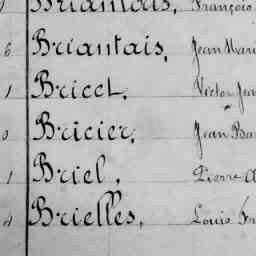 Briantais, François
6 Briantais, Jean Mari
1 Bricet, Victor Jean
0 Bricier, Jean Ba
1 Briel, Pierre A
4 Brielles, Louis Fr